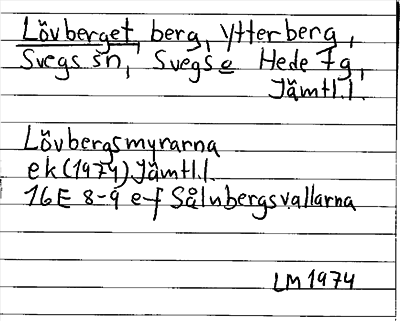 Lövberget, berg, Ytterberg,
Svegs sn, Svegs e Hede 7g,
Jämtl.l.
Lövbergsmyrarna
ek (1974) Jämtl.l.
16E 8-9 e-f Sålnbergsvallarna
LM 1974